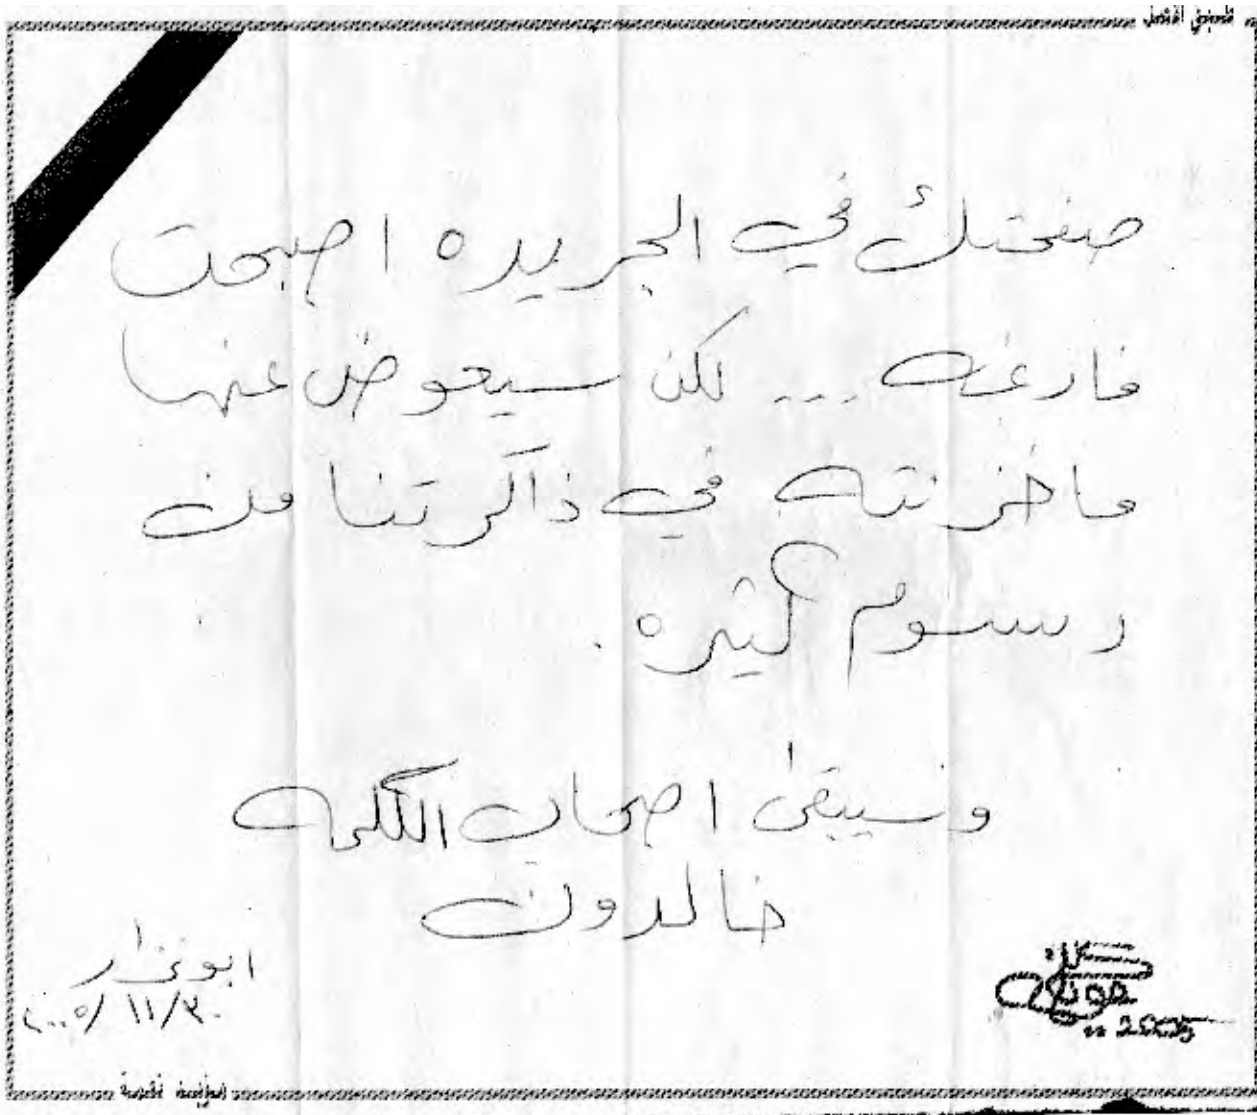 صفحتك في الجريده اصبحت
فارغه ... لكن سيعوض عنها
ما خزنته في ذاكرتنا من
رسوم كثيره .
وسيبقى اصحاب الكلمه
خالدون
ابو نزار
٢٠٠٥/ ١١/٣٠
2005